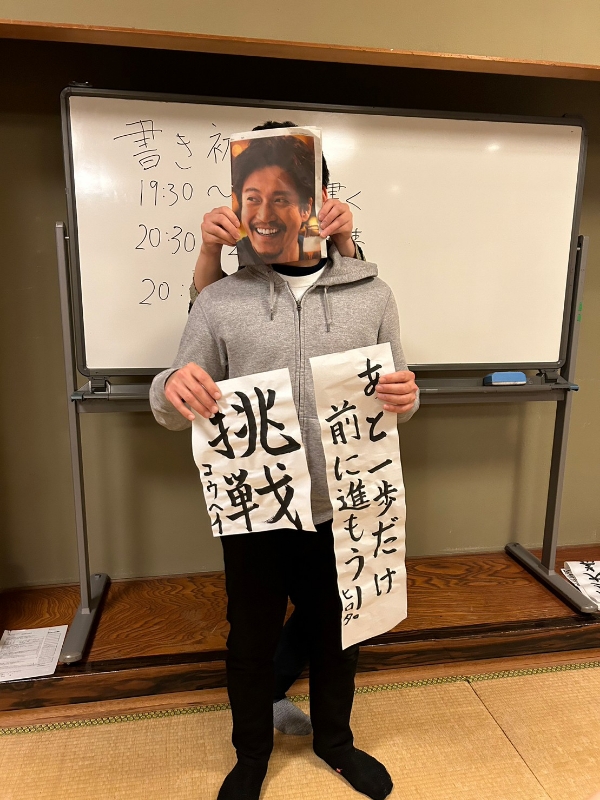 書き初
19:30 〜 書く
20:30
20:
挑戦
コウヘイ
あと一歩だけ
前に進もう!
ヒロタ